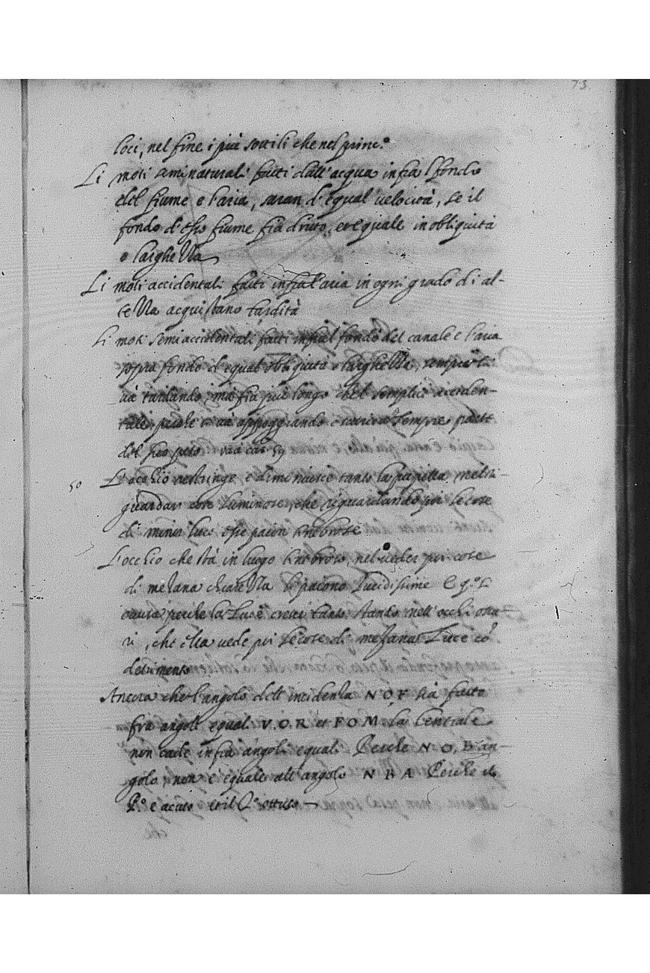 73
loci, nel fine i più sottili che nel princ.º
Li moti seminaturali fatti dall'acqua infra l fondo
del fiume e l'aria, saran d'equal velocità, se il
fondo d'esso fiume fia dritto, et equale in obliquità
o larghezza
Li moti accidentali fatti infra l'aria in ogni grado di al-
tezza acquistano tardità
Li moti semiaccidentali fatti infra l fondo del canale e l'aria
sopra fondo d'equal obliquità e larghezza, sempre si
va tardando, ma fia più longo che l semplice acciden-
tale, perche e va appoggiando e sempre parte
del suo peso
50 L'occhio restringe e diminuisce tanto la pupilla nel ri-
guardar cose luminose, che riguardando poi le cose
di minor luce esse paion tenebrose
L'occhio che sta in luogo tenebroso, nel veder poi cose
di mezana chiarezza li pacono lucidissime e q.º
perche la luce cresce tanto nell occhi
ri, che ella vede poi le cose di mezana luce cō
detrimento
Ancora che l'angolo dell incidenza N O F ha fatto
fra angoli equali V.O.R et F O M, la Centrale
non cade infra angoli equali Perche N O, B an-
golo, non e equale all'angolo N B A Perche il
P.º e acuto et il 2º ottuso
che